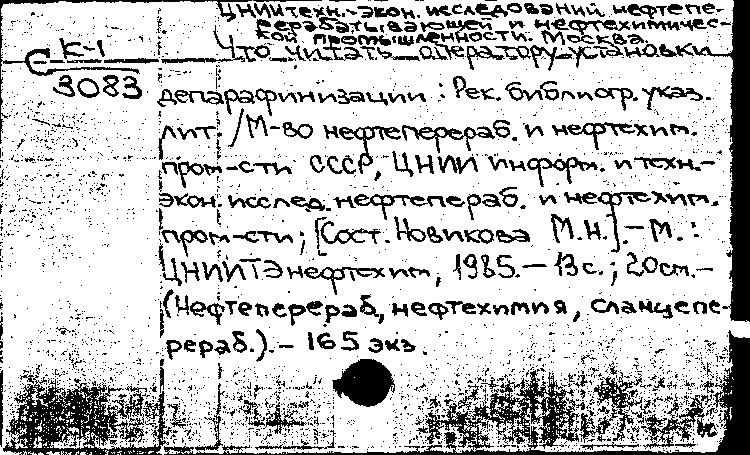 ЦНИИ техн.-экон. исследований нефтепе-
рерабатывающей и нефтехимичес-
кой промышленности. Москва.
Что читать оператору установки
С К-1
3083
депарафинизации : Рек. библиогр. указ.
лит. / М-во нефтеперераб. и нефтехим.
пром-сти СССР, ЦНИИ информ. и техн.-
экон. исслед. нефтеперераб. и нефтехим.
пром-сти; [Сост. Новикова М.Н.]. - М. :
ЦНИИТЭнефтехим, 1985. - 13 с. ; 20 см. -
(Нефтеперераб, нефтехимия, сланцепе-
рераб.). - 165 экз.